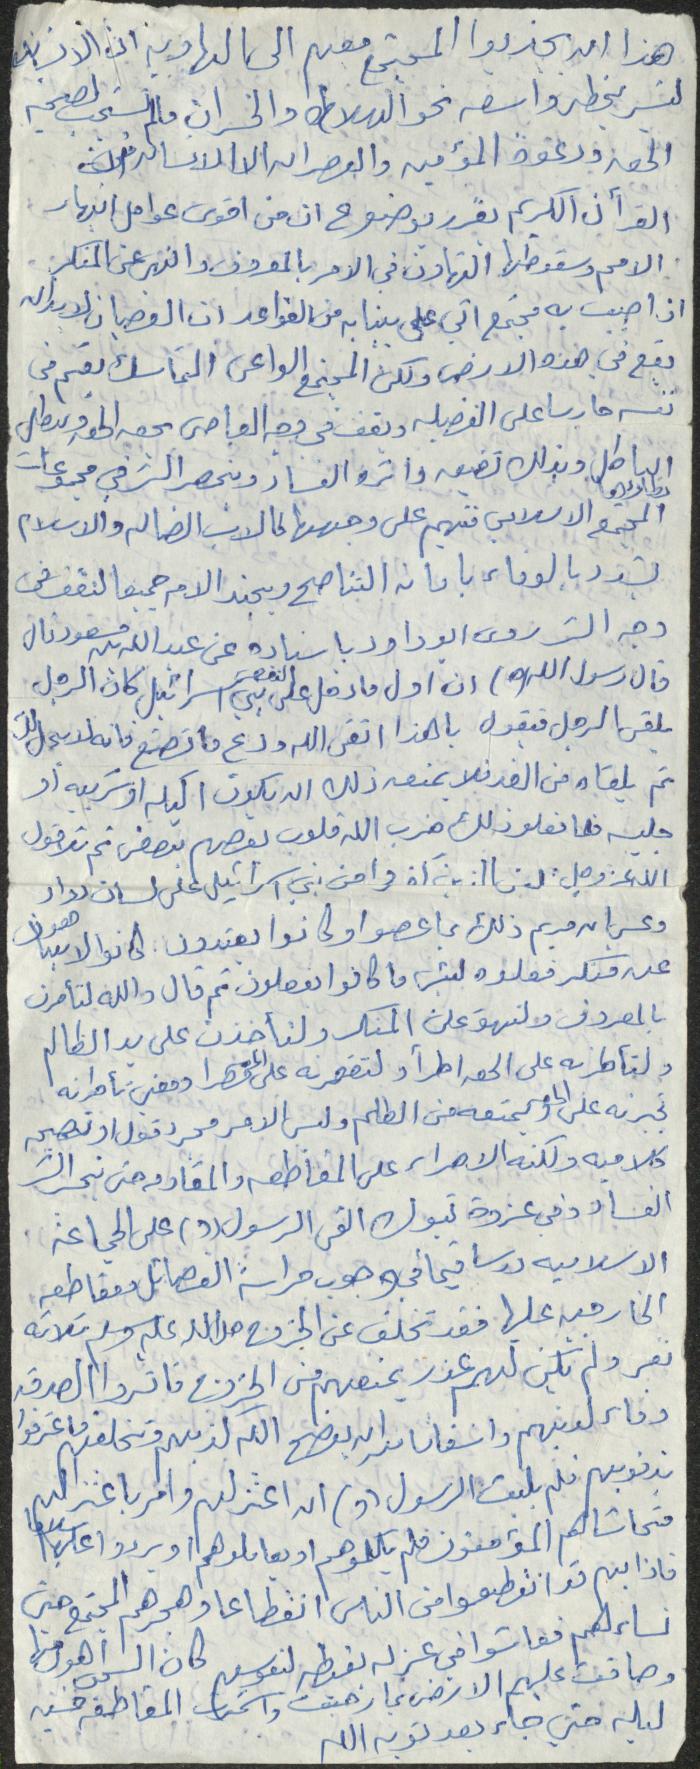 هذا ان يجذبوا المجتمع معهم الى الهاوية
ليسير بخطى واسعه نحو الهلاك والخسران ولم تستجب لصيحة
الحق ودعوة المؤمنين
القرآن الكريم يقرر بوضوح ان من اقوى عوامل انهيار
الامم وسقوطها التهاون في الامر بالمعروف والنهي عن المنكر
اذا اصيب به مجتمع اتى على بنيانه من القواعد ان العصيان لا بد ان
يقع في هذه الارض ولكن المجتمع الواعي المتماسك يقيم في
نفسه حارسا على الفضيله ويقف في وجه العاصي يحق الحق ويبطل
الباطل وبذلك تضيق دائرة الفساد وينحصر الشر في مجموعات
يطاردها
المجتمع الاسلامي فتهيم على وجهها كالابل الضاله والاسلام
يشدد بالوفاء بامانه التناصح ويجند الامه جميعا لتقف في
وجه الشر روى ابو داود باسناده عن عبد الله بن مسعود قال
قال رسول الله (ص) ان اول ما دخل النقص على بني اسرائيل كان الرجل
يلقى الرجل فيقول يا هذا اتقى الله ودع ما تصنع فانه لا يحل لك
ثم يلقاه من الغد فلا يمنعه ذلك ان يكون اكيله او شريبه او
جليسه فلما فعلوا ذلك ضرب الله قلوب بعضهم ببعض ثم تلا قول
الله عز وجل: لعن الذين كفروا من بني اسرائيل على لسان داود
وعيسى ابن مريم ذلك بما عصوا وكانوا يعتدون. كانوا لا يتناهون
عن منكر فعلوه لبئس ما كانوا يفعلون ثم قال والله لتأمرن
بالمعروف ولتنهون عن المنكر ولتأخذن على يد الظالم
ولتأطرنه على الحق اطرأ ولتقصرنه على الحق قصرا ومعنى تأطرنه
تجبرنه على الحق وتمنعه من الظلم وليس الامر مجرد قول او نصيحه
كلاميه ولكنه الاصرار على المقاطعه والمقاومه حتى
الفساد وفي غزوة تبوك القى الرسول (ص) على الجماعة
الاسلاميه درسا قيما في وجوب حراسة الفضائل ومقاطعه
الخارجين عليها فقد تخلف عن الخروج صلى الله عليه وسلم ثلاثة
نفر ولم يكن لهم عذر يمنعهم من الخروج فآثروا الصدق
وفاء لدينهم واشفاقا من ان يفضح الله كذبهم وتخلفهم فاعترفوا
بذنوبهم فلم يلبث الرسول (ص) ان اعتزلهم وامر باعتزالهم
فتحاشاهم المؤمنون فلم يكلموهم او يعاملوهم او يردوا عليهم سلاما
فاذا بهم قد انقطعوا من الناس انقطاعا وهجرهم المجتمع حتى
نساءهم فعاشوا في عزله كان السجن أهون منها
وضاقت عليهم الارض بما رحبت واستمرت المقاطعه خمسين
ليله حتى جاء بعد توبه الله